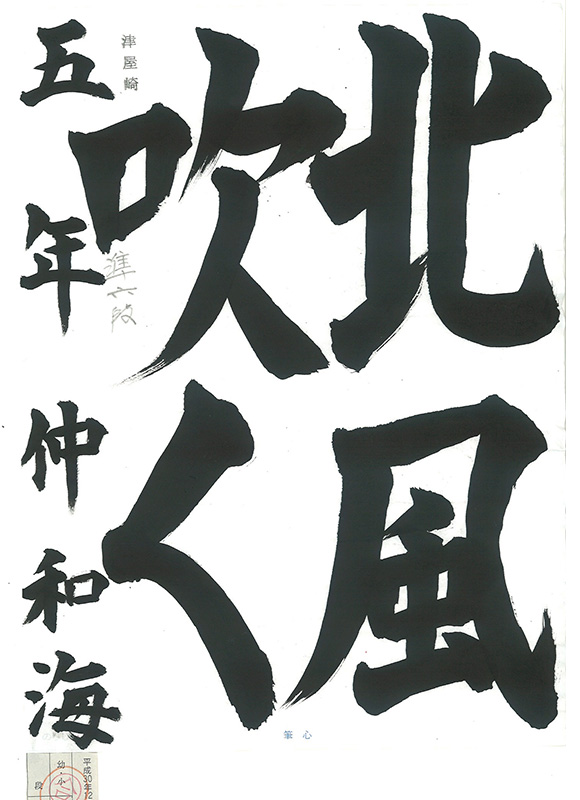 北風
吹く
津屋崎
準六段
五年 仲和海
心筆
平成30年12
幼・小
段